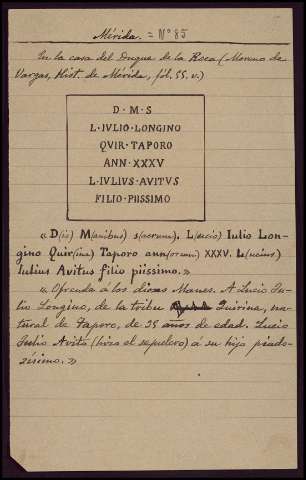 Mérida. = Nº 85
En la casa del Duque de la Roca (Moreno de
Vargas, Hist. de Mérida, fol. 55. v.)
D · M · S
L · IVLIO · LONGINO
QVIR · TAPORO
ANN · XXXV
L · IVLIVS · AVITVS
FILIO · PIISSIMO
« D(is) M(anibus) s(acrum). L(ucio) Iulio Lon-
gino Quir(ina) Taporo ann(orum) XXXV. L(ucius)
Iulius Avitus filio piissimo. »
« Ofrenda á los dioses Manes. A Lucio Ju-
lio Longino, de la tribu Quirina, na-
tural de Taporo, de 35 años de edad. Lucio
Julio Avito (hizo el sepulcro) á su hijo piado-
sísimo. »